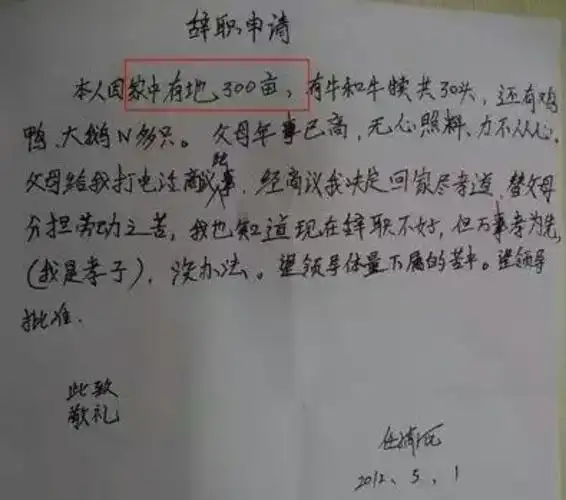 辞职申请
本人因家中有地300亩,有牛和牛犊共30头,还有鸡
鸭、大鹅N多只。父母年事已高,无心照料、力不从心。
父母给我打电话商议此事,经商议我决定回家尽孝道,替父母
分担劳动之苦,我也知道现在辞职不好,但万事孝为先,
(我是孝子),没办法。望领导体量下属的苦中。望领导
批准.
此致
敬礼
2012、5、1